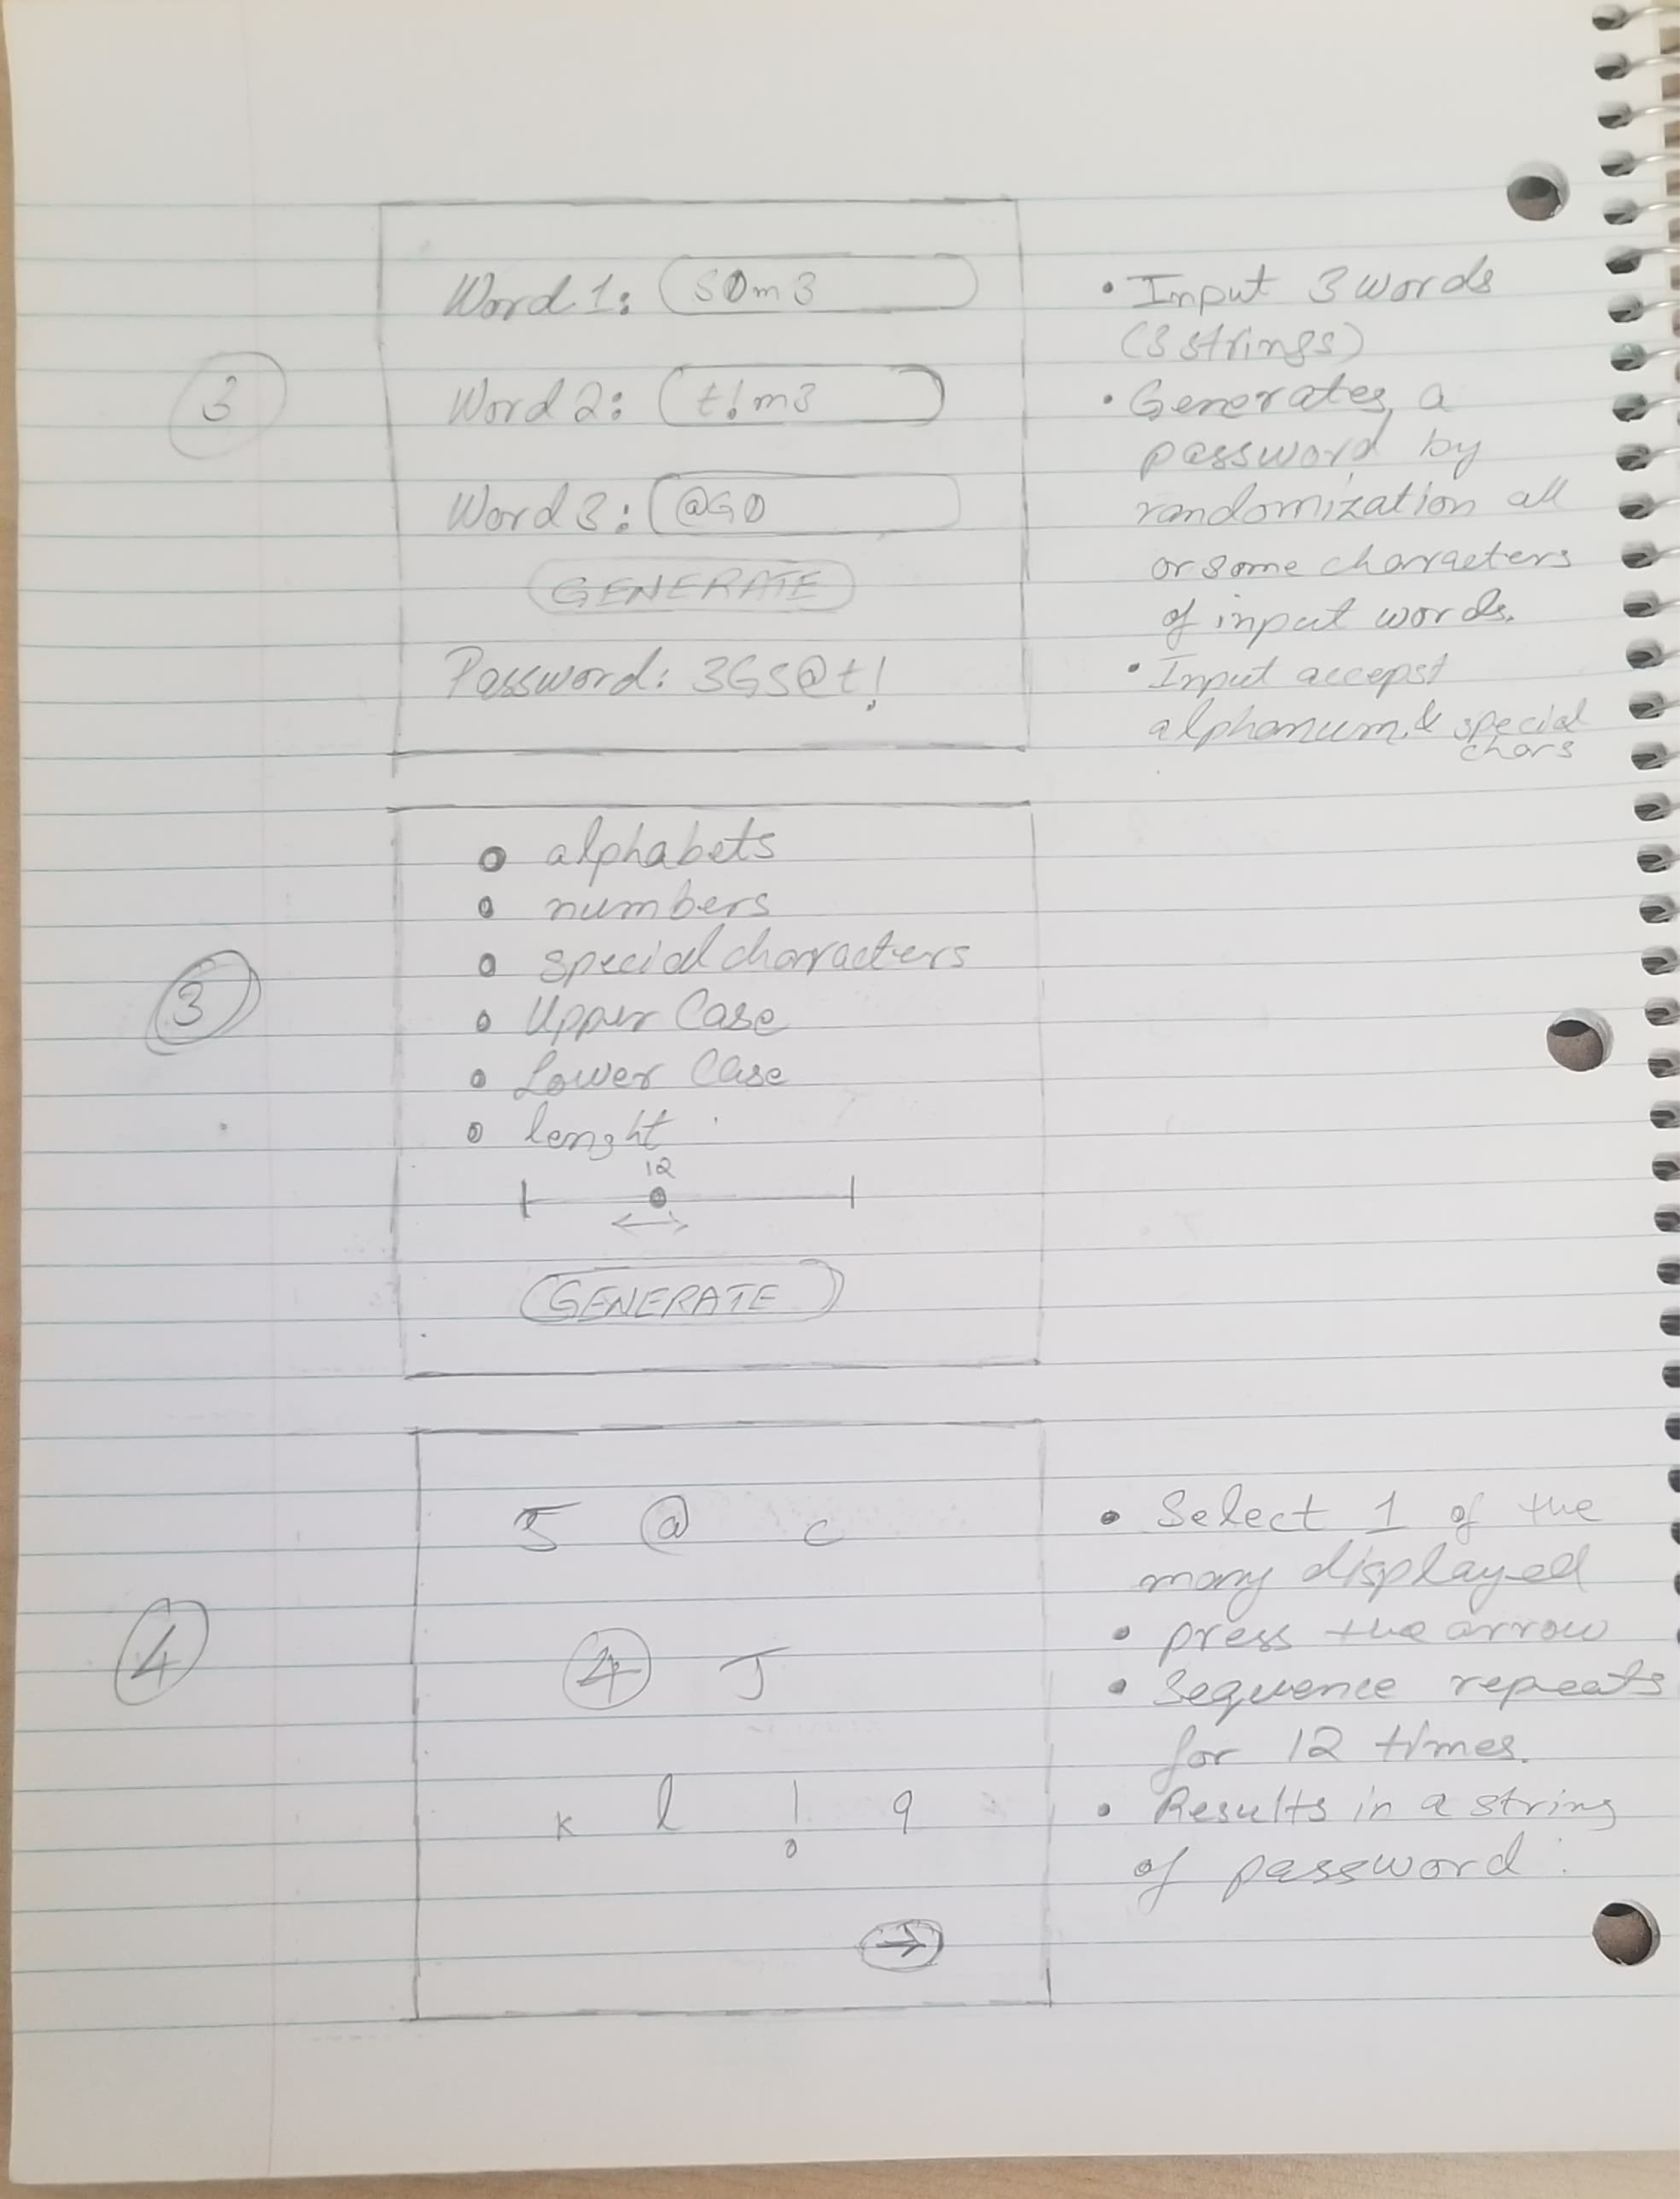 3
Word 1: S0m3
Word 2: t!m3
Word 3: @G0
GENERATE
Password: 3GS@t!
• Input 3 words
(3 strings)
• Generates a
password by
randomization all
or some characters
of input words.
• Input accepst
alphanum. & special
chars
3
alphabets
numbers
special characters
Upper Case
Lower Case
lenght
12
GENERATE
4
5 @ c
4 J
k l ! 9
→
• Select 1 of the
many displayed
• press the arrow
• Sequence repeats
for 12 times.
• Results in a string
of password.